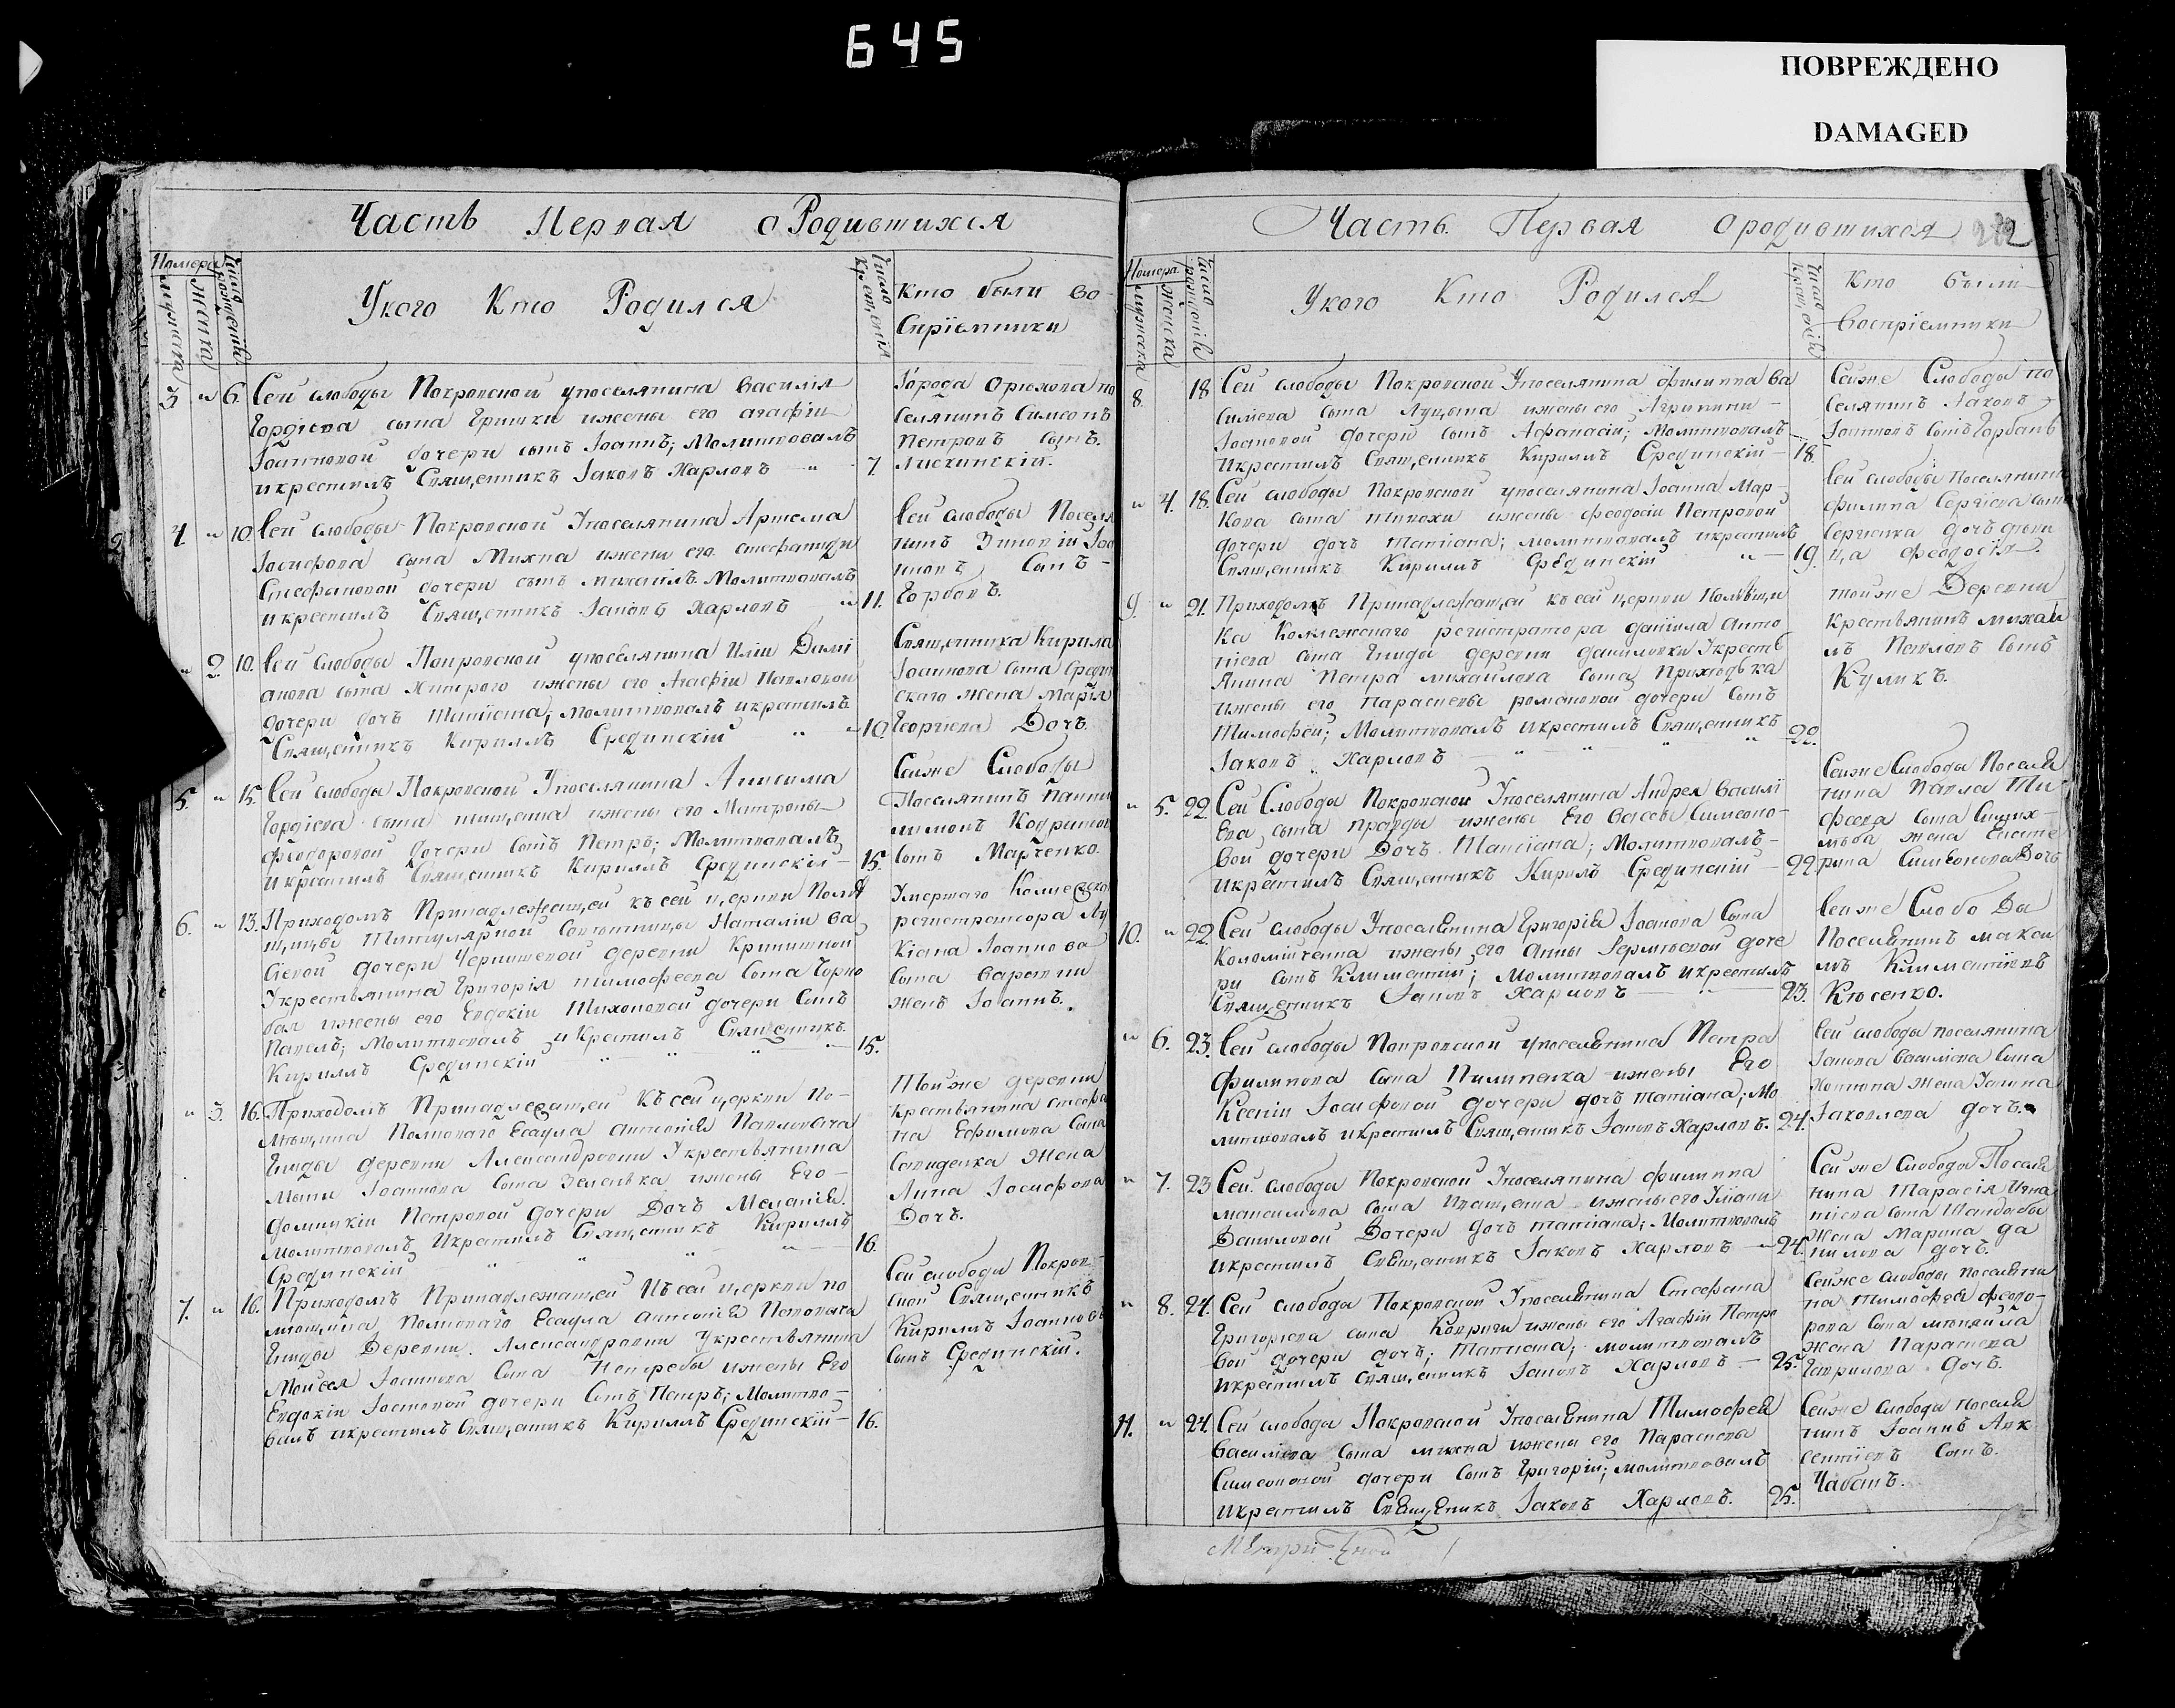 645
ПОВРЕЖДЕНО
DAMAGED
Часть Первая о Родившихся
Номера
мужеска
женска
Число рожденія
Укого Кто Родился
Число крещенія
Кто были во-
спріѣмники
3 " 6. Сей слободы Покровской упоселянина Василія
Гордіева сына Гришки ижены его агафіи
Іоанновой дочери сынъ Іоаннъ; Молитвовалъ
икрестилъ Священникъ Іаковъ Харловъ " 7.
Города Орюхова по
селянинъ Симеонъ
Петровъ сынъ.
4 " 10. Сей слободы Покровской Упоселянина Артема
Іосифова сына Михна ижены его стефаниды
Стефановой дочери сынъ михаилъ. Молитвовалъ
икрестилъ Священникъ Іаковъ Харловъ " 11.
Сей слободы Поселя
нинъ Зиновій Іоа
нновъ Сынъ -
Горбовъ.
" 2. 10. Сей слободы Покровской упоселянина Иліи Дами
анова сына Хитрого ижены его Агафіи Павловой
дочери дочъ Татіана; молитвовалъ икрестилъ
Священникъ Кириллъ Срединскій " 10.
Священника Кирила
Іоаннова сына Средин
скаго жена Марія
Георгіева Дочъ.
5. " 15. Сей слободы Покровской Упоселянина Анисима
Гордіева сына ижены его Матроны
феодоровой дочери сынъ Петръ; Молитвовалъ
икрестилъ Священникъ Кириллъ Срединскій 15.
Сейже Слободы
Поселянинъ Панти
лимонъ Кодратов
сынъ Марченко.
6. " 13. Приходомъ Принадлежащей къ сей церкви Помѣ
щицы Титулярной Совѣтницы Наталіи Ва
сіевой дочери Чернишевой деревни Кринишной
Укрестьянина Григорія тимофеева Сына Горно
бая ижены его Евдокіи Тихоновой дочери Сынъ
Павелъ; Молитвовалъ и Крестилъ Священникъ
Кириллъ Срединскій " " " " 15.
Умершаго Коллежска
регистратора Лу
кіана Іоаннова
сына
Іоаннъ.
" 3. 16. Приходомъ Принадлежащей къ сей церкви По-
мѣщика Полковаго Есаула антонія Павловича
Гниды деревни Александровки Укрестьянина
Іоаннова сына ижены Его
домникіи Петровой дочери Дочъ Меланія.
Молитвовалъ Икрестилъ Священникъ Кириллъ
Срединскій " " " " 16.
Тойже деревни
крестьянина стефа
на Ефимова Сына
Жена
Анна Іосифова
Дочъ.
7. " 16. Приходомъ Принадлежащей Къ сей церкви по
мѣщика Полковаго Есаула антонія Павловича
Гниды Деревни. Александровки Укрестьянина
Моисея Іоаннова Сына Непребы ижены Его
Евдокіи Іоановой дочери Сынъ Петръ; Молитво-
валъ икрестилъ Священникъ Кириллъ Срединскій 16.
Сей слободы Покров-
ской Священникъ
Кириллъ Іоанновъ
сынъ Срединскій.
Часть Первая ородившихся
Номера
мужеска
женска
Число рожденія
Укого Кто Родился
Число крещенія
Кто были
воспріемники
8. 18. Сей слободы Покровской Упоселянина филиппа Ва
силіева сына Луцына ижены его Агрипины
Іоановой дочери сынъ Афанасій; молитвовалъ
икрестилъ Священникъ Кириллъ Срединскій 18.
Сейже Слободы по
селянинъ Іаковъ
Іоанновъ сынъ Горбань
" 4. 18. Сей слободы Покровской упоселянина Іоанна Мар-
кова сына ижены феодосіи Петровой
дочери дочъ татіана; молитвовалъ икрестилъ
Священникъ Кириллъ Срединскій " 19.
Сей слободы Поселянина
филипа Сергіева сына
Сергіенка дочъ дѣви
ца феодосія.
9. " 21. Приходомъ Принадлежащей къ сей церкви Помѣщи
ка Коллежскаго регистратора даніила анто
ніева сына Гниды деревни даниловки Укресть
янина Петра михайлова сына Приходька
ижены его Параскевы романовой дочери Сынъ
Тимофей; Молитвовалъ икрестилъ Священникъ
Іаковъ Харловъ " " " " 22.
тойже Деревни
крестьянинъ михаи
лъ Павловъ сынъ
Куликъ.
" 5. 22. Сей Слободы Покровской Упоселянина Андрея Василі
Ева сына правды ижены Его Вассы Симеоно-
вой дочери Дочъ Татіана; Молитвовалъ
икрестилъ Священникъ Кирилъ Срединскій 22.
Сейже Слободы Поселя
нина Павла Ти
феева сына
жена Екате
рина Симеонова Дочъ
10. " 22. Сей слободы Упоселянина Григорія Іоанова Сына
Коломійченка ижены его Анны доче
ри сынъ Климентій; молитвовалъ икрестилъ
Священникъ Іаковъ Харловъ " 23.
Сейже Слободы
Поселянинъ макси
мъ Климентіевъ
Кѣсенко.
" 6. 23. Сей слободы Покровской упоселянина Петра
филипова сына Пилипенка ижены Его
Ксеніи Іосифовой дочери дочъ татіана; Мо
литвовалъ икрестилъ Священникъ Іаковъ Харловъ. 24.
Сей слободы поселянина
Іакова Василіева Сына
жена
Іаковлева дочъ.
" 7. 23 Сей слободы Покровской Упоселянина филиппа
максимова сына ижены его
Даниловой Дочери дочъ татіана; Молитвовалъ
икрестилъ Священникъ Іаковъ Харловъ " 24.
Сейже Слободы Поселя
нина Тарасія Игна
тіева сына
жена Марина да
нилова дочъ.
" 8. 24. Сей слободы Покровской Упоселянина Стефана
Григоріева сына Ковриги ижены его Агафіи Петро
вой дочери дочъ; Татіана; молитвовалъ
икрестилъ Священникъ Іаковъ Харловъ 25.
Сейже слободы поселяни
на тимофея феодо-
рова сына
жена Параскева
Гаврилова дочъ.
11. " 24. Сей слободы Покровской Упоселянина Тимофея
Василіева сына михна ижены его Параскевы
Симеоновой дочери Сынъ Григорій; молитвовалъ
икрестилъ Священникъ Іаковъ Харловъ. 25.
Сейже слободы поселя
нинъ Іоаннъ Авк
сентіевъ сынъ.
Чабанъ.